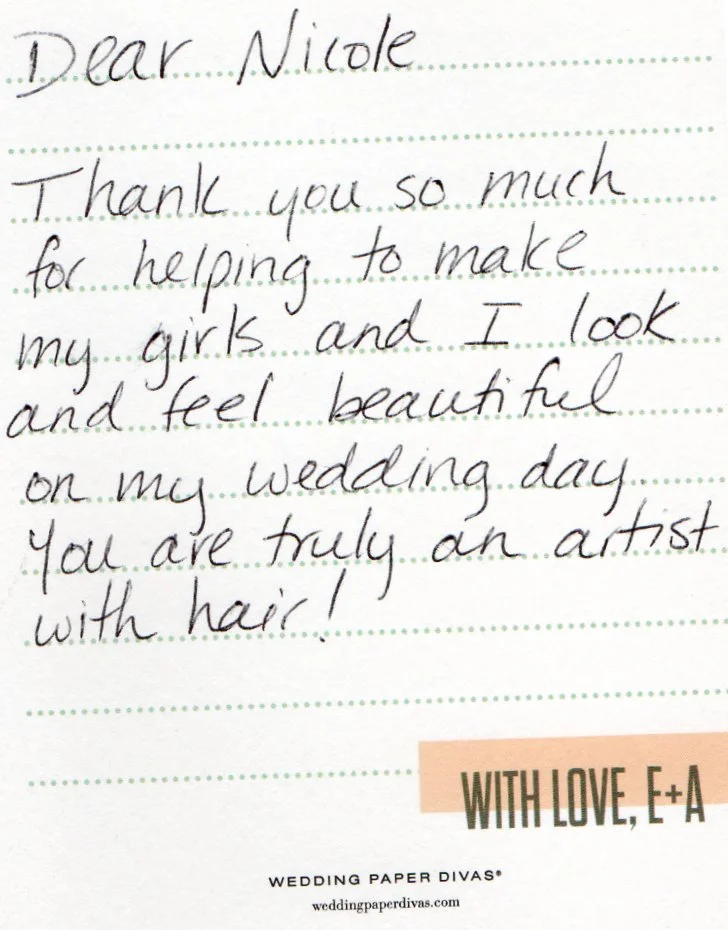 Dear Nicole
Thank you so much
for helping to make
my girls and I look
and feel beautiful
on my wedding day.
You are truly an artist
with hair!
WITH LOVE, E+A
WEDDING PAPER DIVAS®
weddingpaperdivas.com